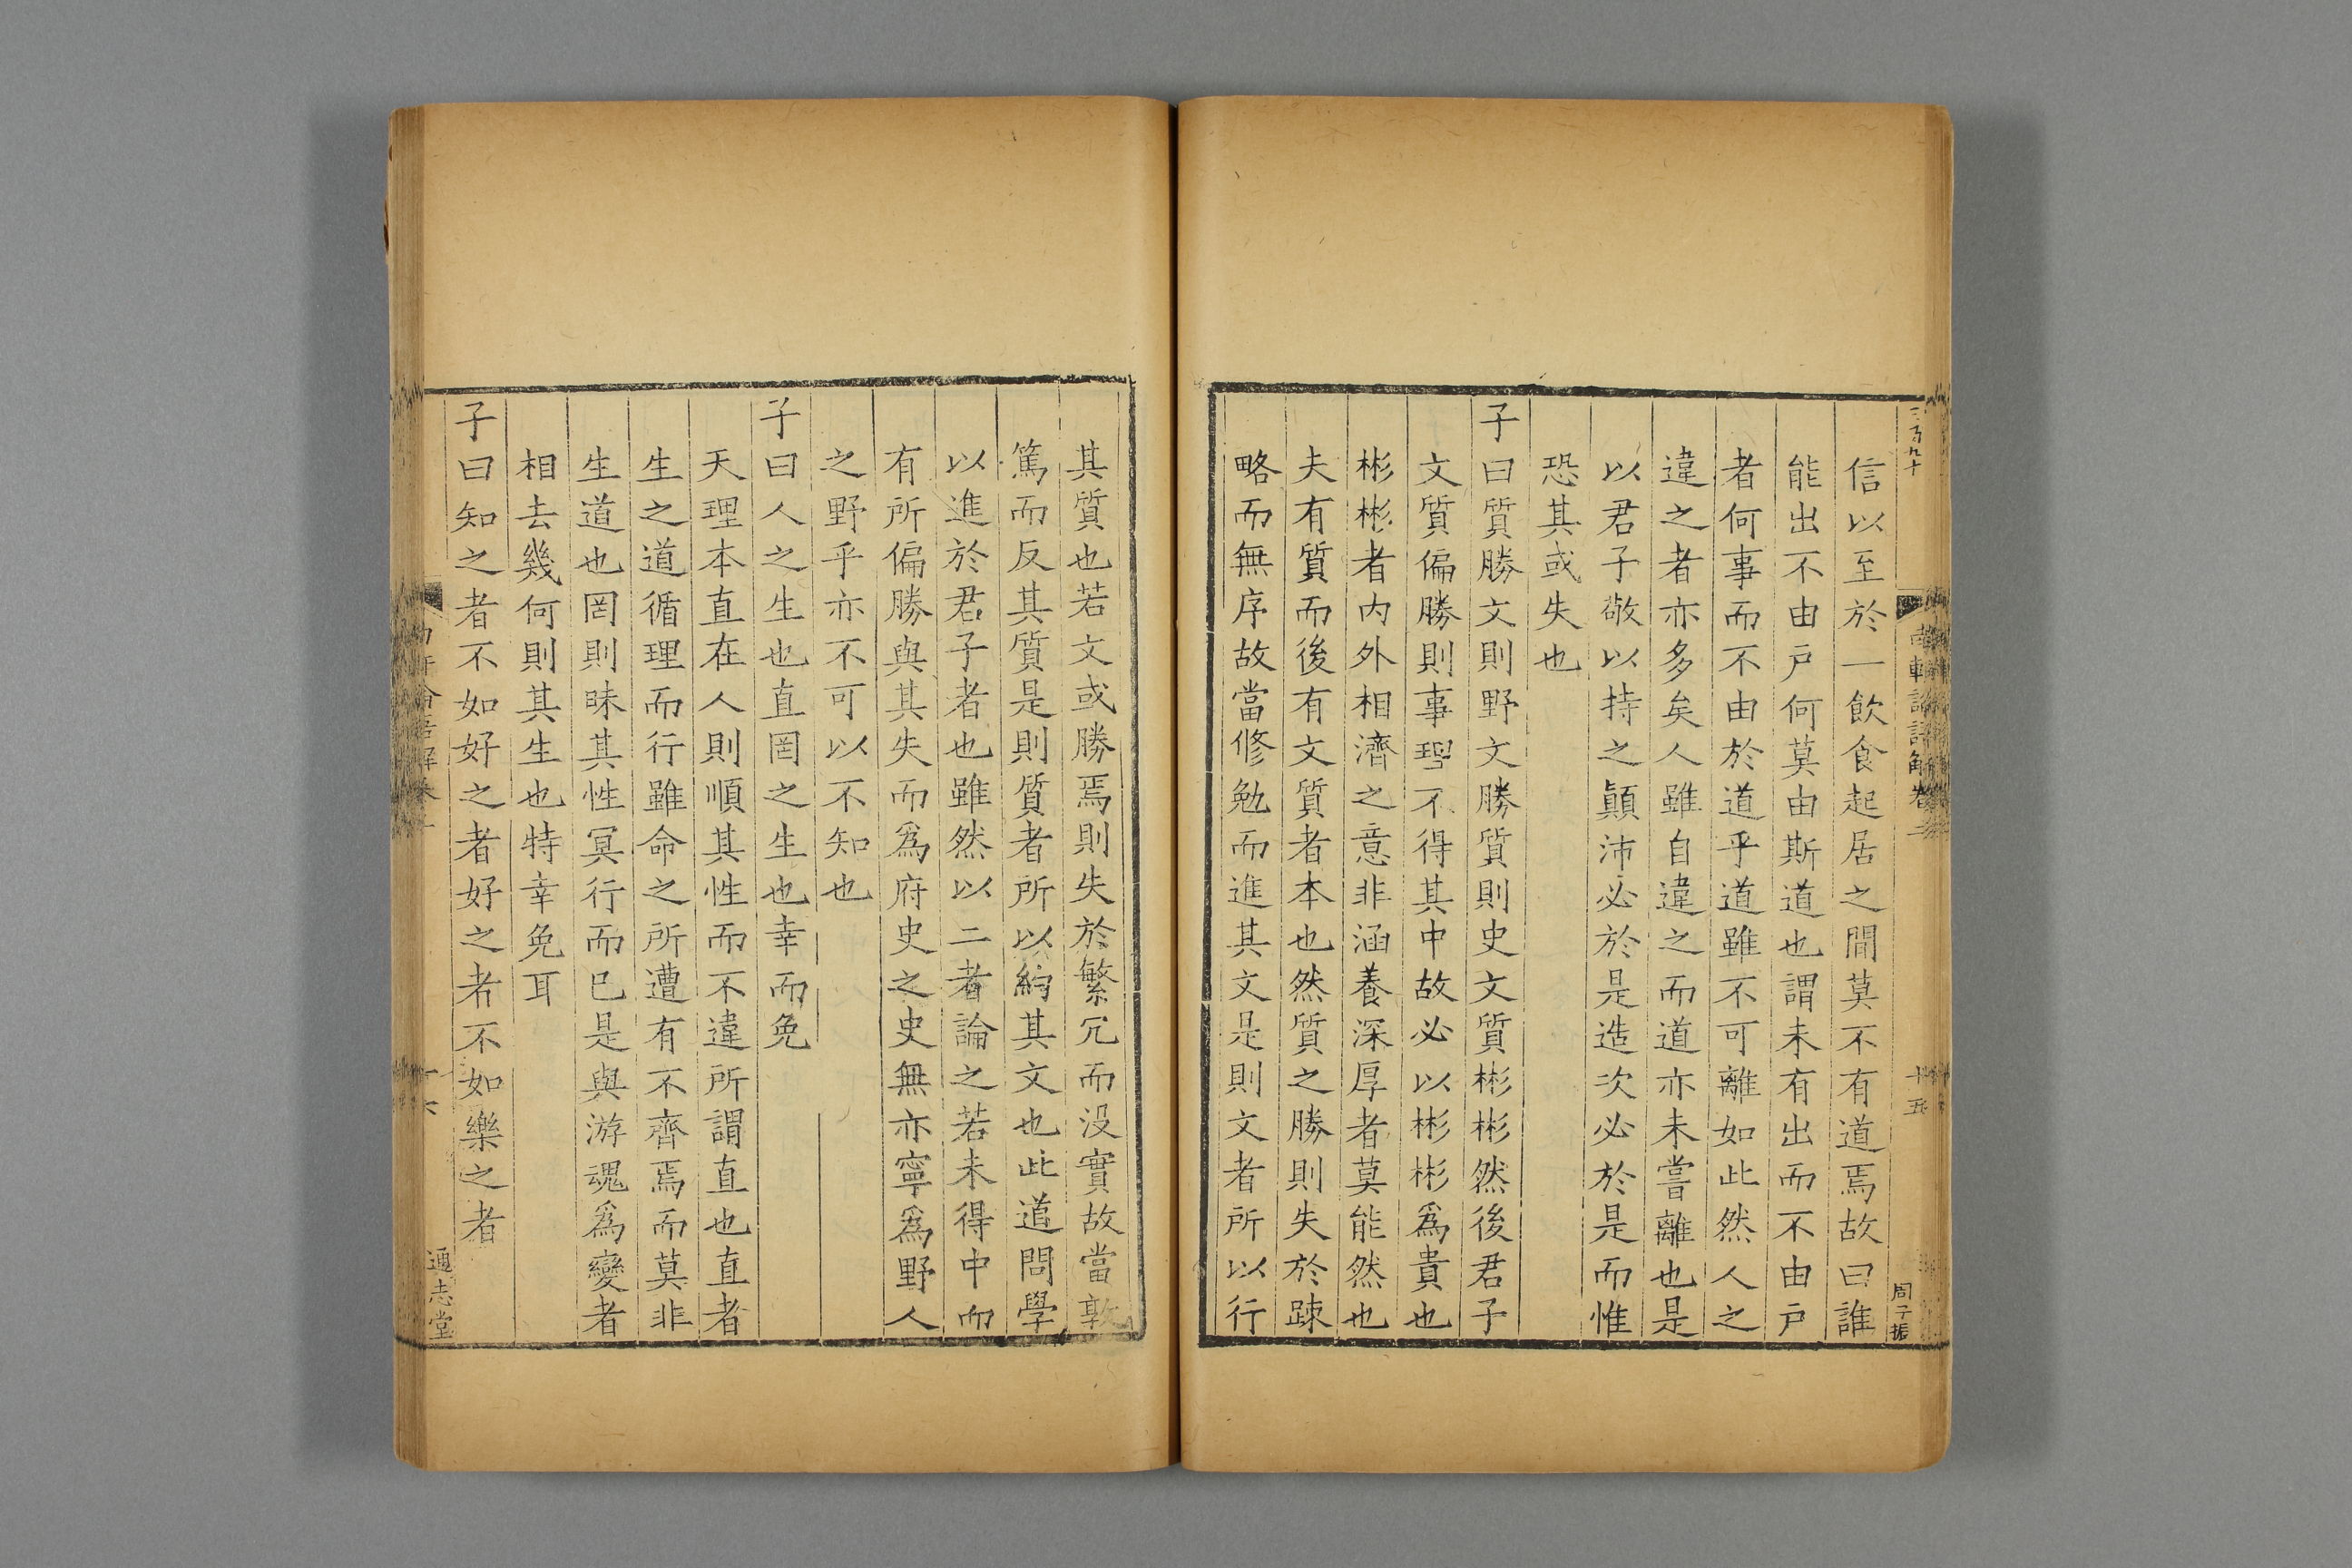 信以至於一飲食起居之間莫不有道焉故曰誰
能出不由戸何莫由斯道也謂未有出而不由戸
者何事而不由於道乎道雖不可離如此然人之
違之者亦多矣人雖自違之而道亦未嘗離也是
以君子敬以持之顛沛必於是造次必於是而惟
恐其或失也
子曰質勝文則野文勝質則史文質彬彬然後君子
文質偏勝則事理不得其中故必以彬彬爲貴也
彬彬者内外相濟之意非涵養深厚者莫能然也
夫有質而後有文質者本也然質之勝則失於踈
略而無序故當修勉而進其文是則文者所以行
其質也若文或勝焉則失於繁冗而没實故當敦
篤而反其質是則質者所以約其文也此道問學
以進於君子者也雖然以二者論之若未得中而
有所偏勝與其失而爲府史之史無亦寧爲野人
之野乎亦不可以不知也
子曰人之生也直罔之生也幸而免
天理本直在人則順其性而不違所謂直也直者
生之道循理而行雖命之所遭有不齊焉而莫非
生道也罔則昧其性冥行而已是與游魂爲變者
相去幾何則其生也特幸免耳
子曰知之者不如好之者好之者不如樂之者
通志堂
三百九十
南軒論語解卷三
十五
周子振